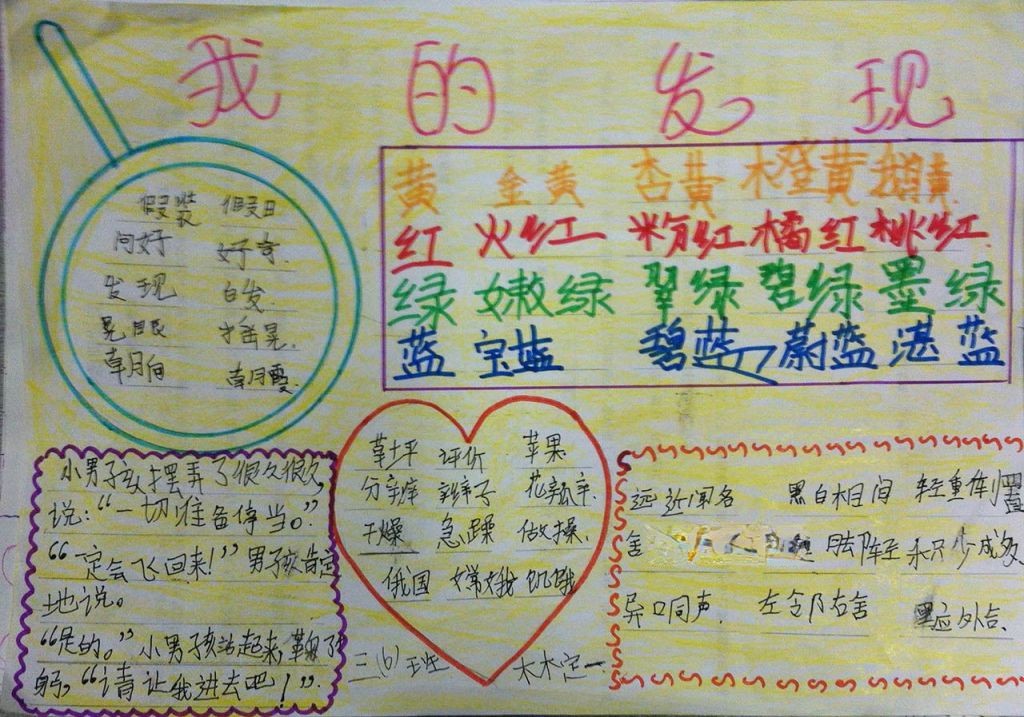 我的发现
假装 假日
问好 好奇
发现 白发
晃眼 摇晃
朝向 朝霞
黄 金黄 杏黄 橙黄 鹅黄
红 火红 粉红 橘红 桃红
绿 嫩绿 翠绿 碧绿 墨绿
蓝 宝蓝 碧蓝 蔚蓝 湛蓝
小男孩摆弄了很久很久
说:“一切准备停当。”
“一定会飞回来!”男孩肯定
地说。
“是的。”小男孩站起来,鞠了
躬,“请让我进去吧!”
草坪 评价 苹果
分辨 辫子 花瓣
干燥 急躁 做操
俄国 嫦娥 饥饿
三(6)班
远近闻名 黑白相间 轻重倒置
舍 人 积少成多
异口同声 左邻右舍 里应外合